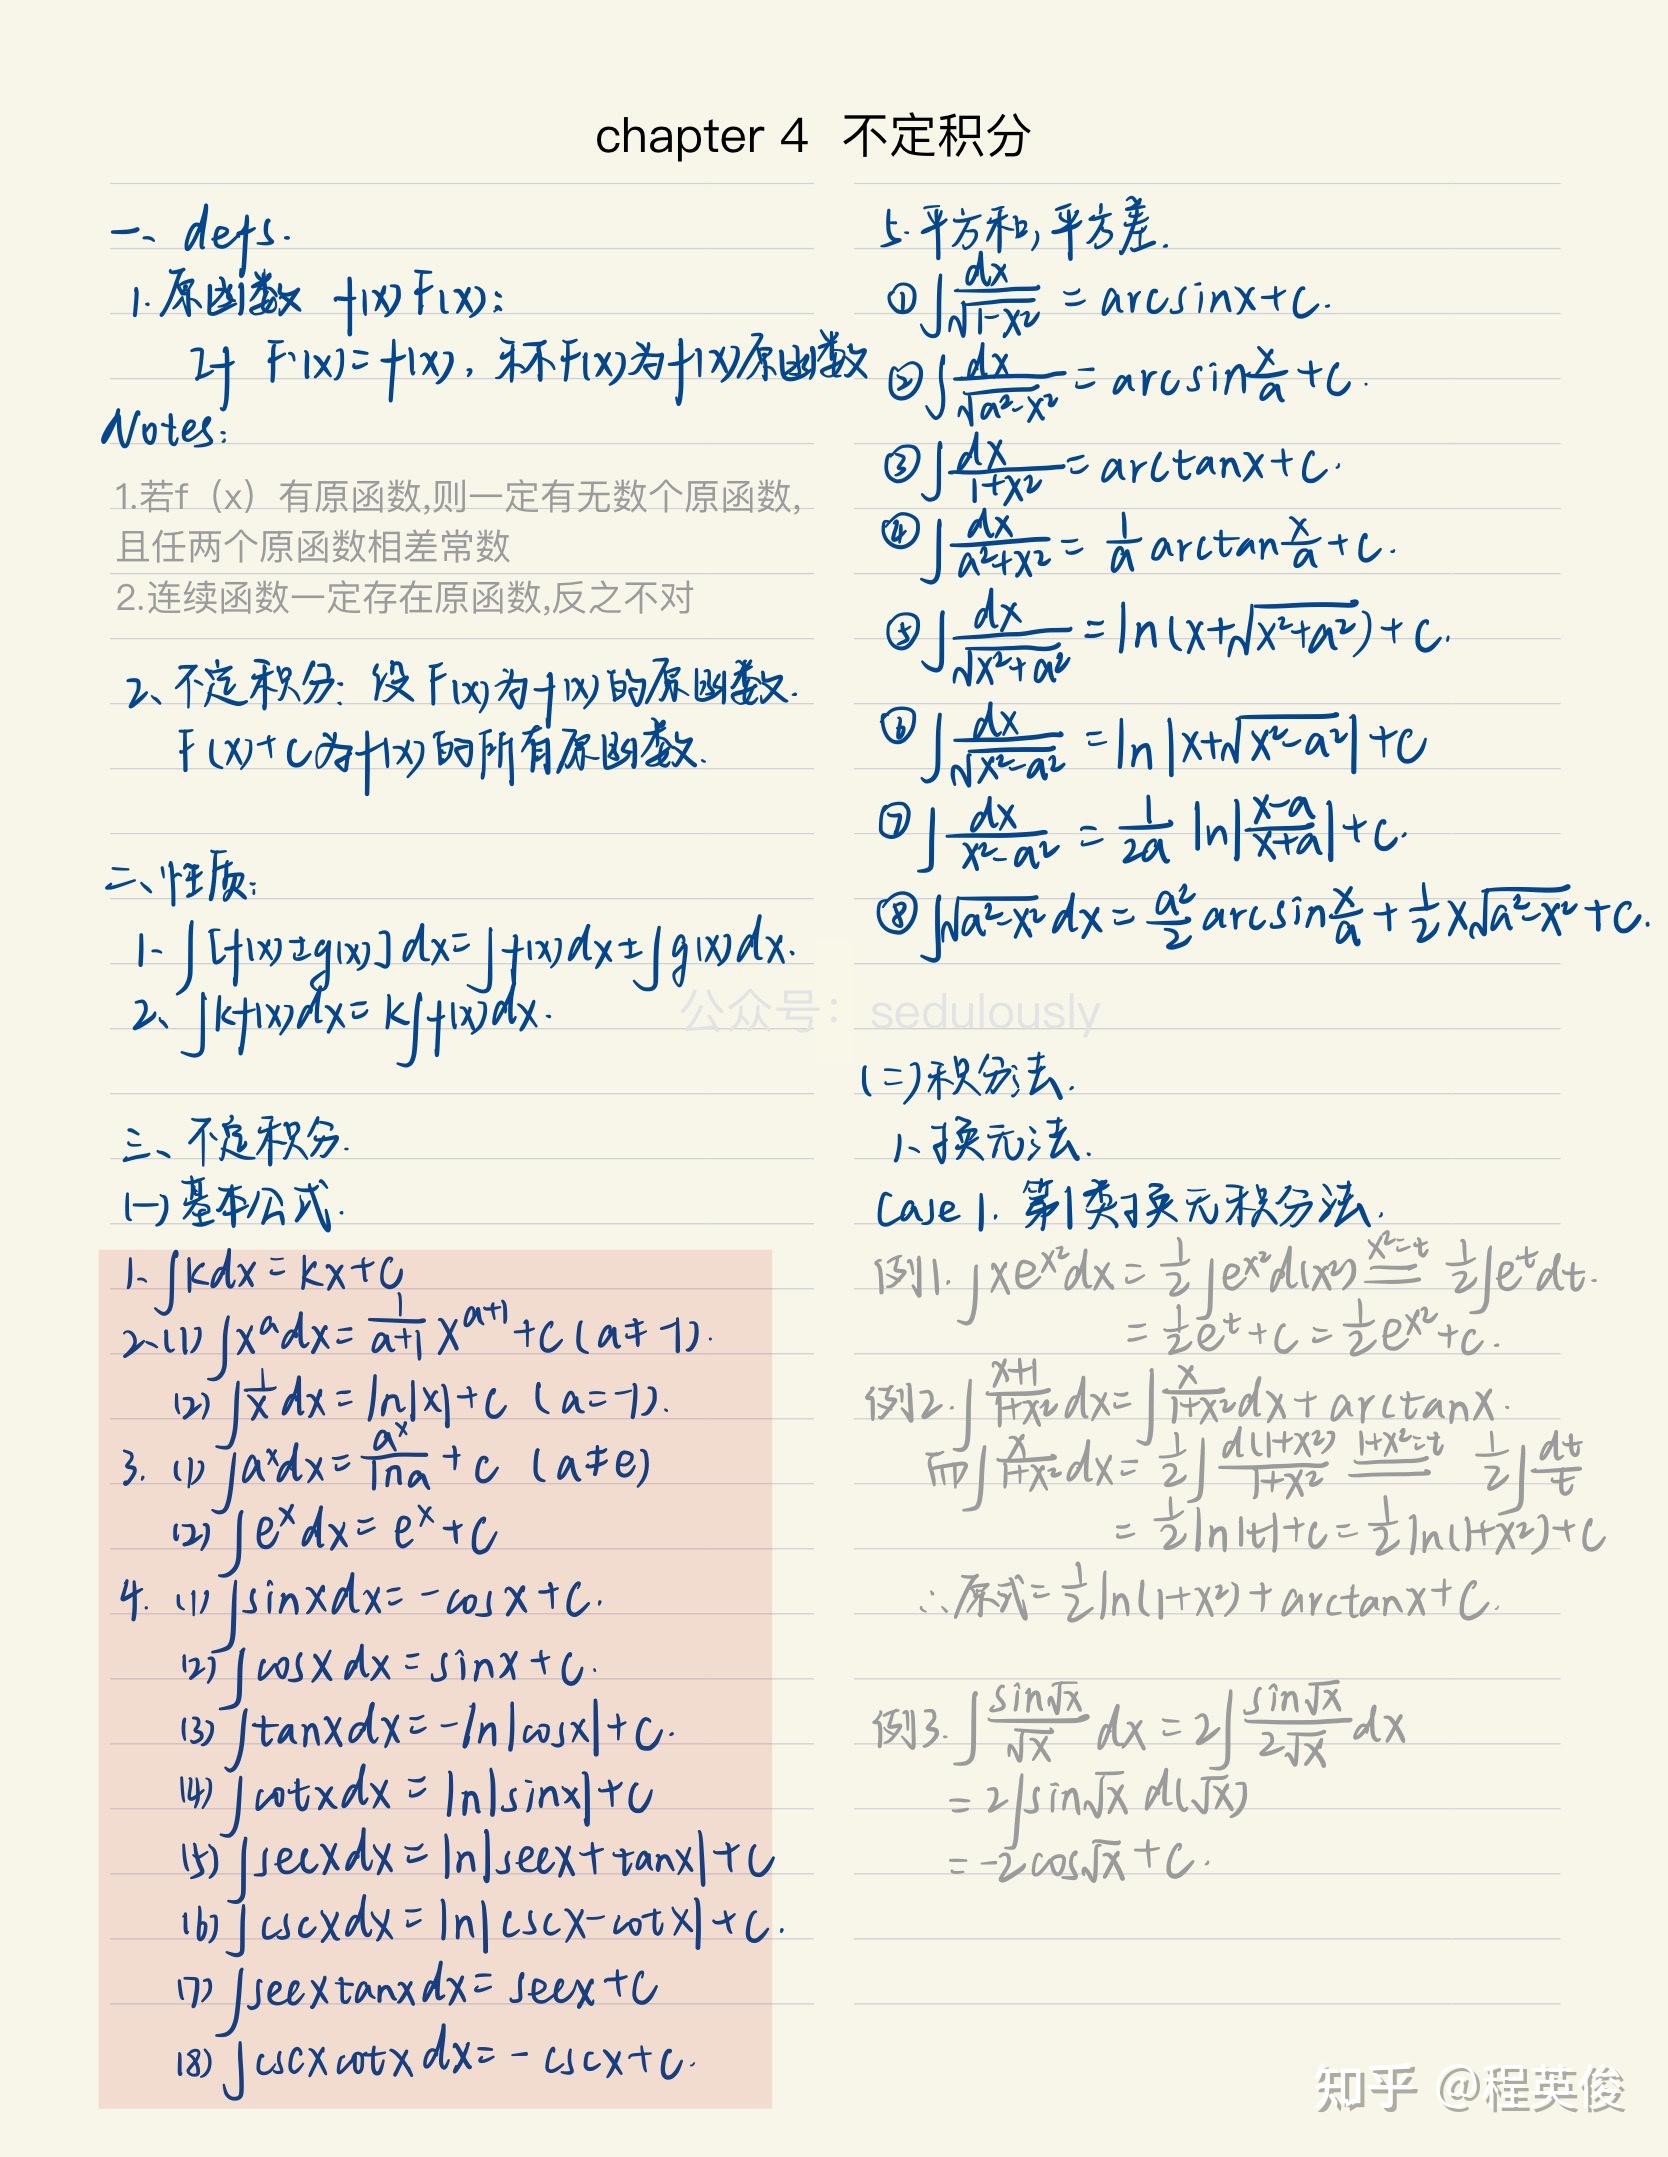 chapter 4 不定积分
一、defs.
1.原函数 f(x) F(x):
if F'(x)=f(x), 称F(x)为f(x)原函数
Notes:
1.若f（x）有原函数,则一定有无数个原函数,
且任两个原函数相差常数
2.连续函数一定存在原函数,反之不对
2、不定积分: 设F(x)为f(x)的原函数.
F(x)+C为f(x)的所有原函数.
二、性质:
1. ∫[f(x)±g(x)]dx=∫f(x)dx±∫g(x)dx.
2、∫kf(x)dx=k∫f(x)dx.
三、不定积分.
(一)基本公式.
1、∫kdx=kx+C
2、(1) ∫x^a dx=1/(a+1) x^(a+1)+C (a≠-1).
(2) ∫1/x dx=ln|x|+C (a=-1).
3. (1) ∫a^x dx=a^x/lna+C (a≠e)
(2) ∫e^x dx=e^x+C
4. (1) ∫sinxdx=-cosx+C.
(2) ∫cosxdx=sinx+C.
(3) ∫tanxdx=-ln|cosx|+C.
(4) ∫cotxdx=ln|sinx|+C
(5) ∫secxdx=ln|secx+tanx|+C
(6) ∫cscxdx=ln|cscx-cotx|+C.
(7) ∫secxtanxdx=secx+C
(8) ∫cscxcotxdx=-cscx+C.
5.平方和,平方差.
① ∫dx/√(1-x²)=arcsinx+C.
② ∫dx/√(a²-x²)=arcsin x/a+C.
③ ∫dx/(1+x²)=arctanx+C.
④ ∫dx/(a²+x²)=1/a arctan x/a+C.
⑤ ∫dx/√(x²+a²)=ln(x+√(x²+a²))+C.
⑥ ∫dx/√(x²-a²)=ln|x+√(x²-a²)|+C
⑦ ∫dx/(x²-a²)=1/2a ln|(x-a)/(x+a)|+C.
⑧ ∫√(a²-x²)dx=a²/2 arcsin x/a+1/2 x√(a²-x²)+C.
公众号：sedulously
(二)积分法.
1、换元法.
Case 1. 第1类换元积分法.
例1. ∫xe^(x²)dx=1/2∫e^(x²)d(x²) x²=t 1/2∫e^t dt.
=1/2e^t+C=1/2e^(x²)+C.
例2. ∫(x+1)/(1+x²)dx=∫x/(1+x²)dx+arctanx.
而∫x/(1+x²)dx=1/2∫d(1+x²)/(1+x²) 1+x²=t 1/2∫dt/t
=1/2ln|t|+C=1/2ln(1+x²)+C
∴原式=1/2ln(1+x²)+arctanx+C.
例3. ∫sin√x/√x dx=2∫sin√x/2√x dx
=2∫sin√x d(√x)
=-2cos√x+C.
知乎 @程英俊